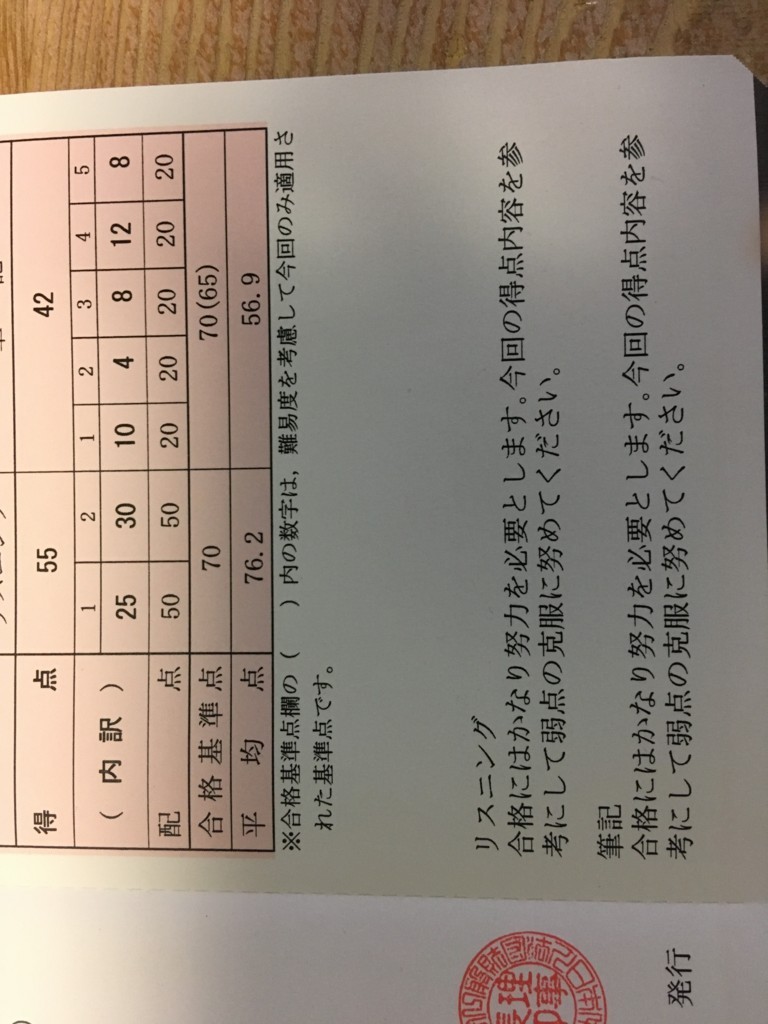 得 点 55 42
( 内 訳 ) 1 2 1 2 3 4 5
25 30 10 4 8 12 8
配 点 50 50 20 20 20 20 20
合 格 基 準 点 70 70(65)
平 均 点 76.2 56.9
※合格基準点欄の( )内の数字は，難易度を考慮して今回のみ適用さ
れた基準点です。
リスニング
合格にはかなり努力を必要とします。今回の得点内容を参
考にして弱点の克服に努めてください。
筆記
合格にはかなり努力を必要とします。今回の得点内容を参
考にして弱点の克服に努めてください。
発行